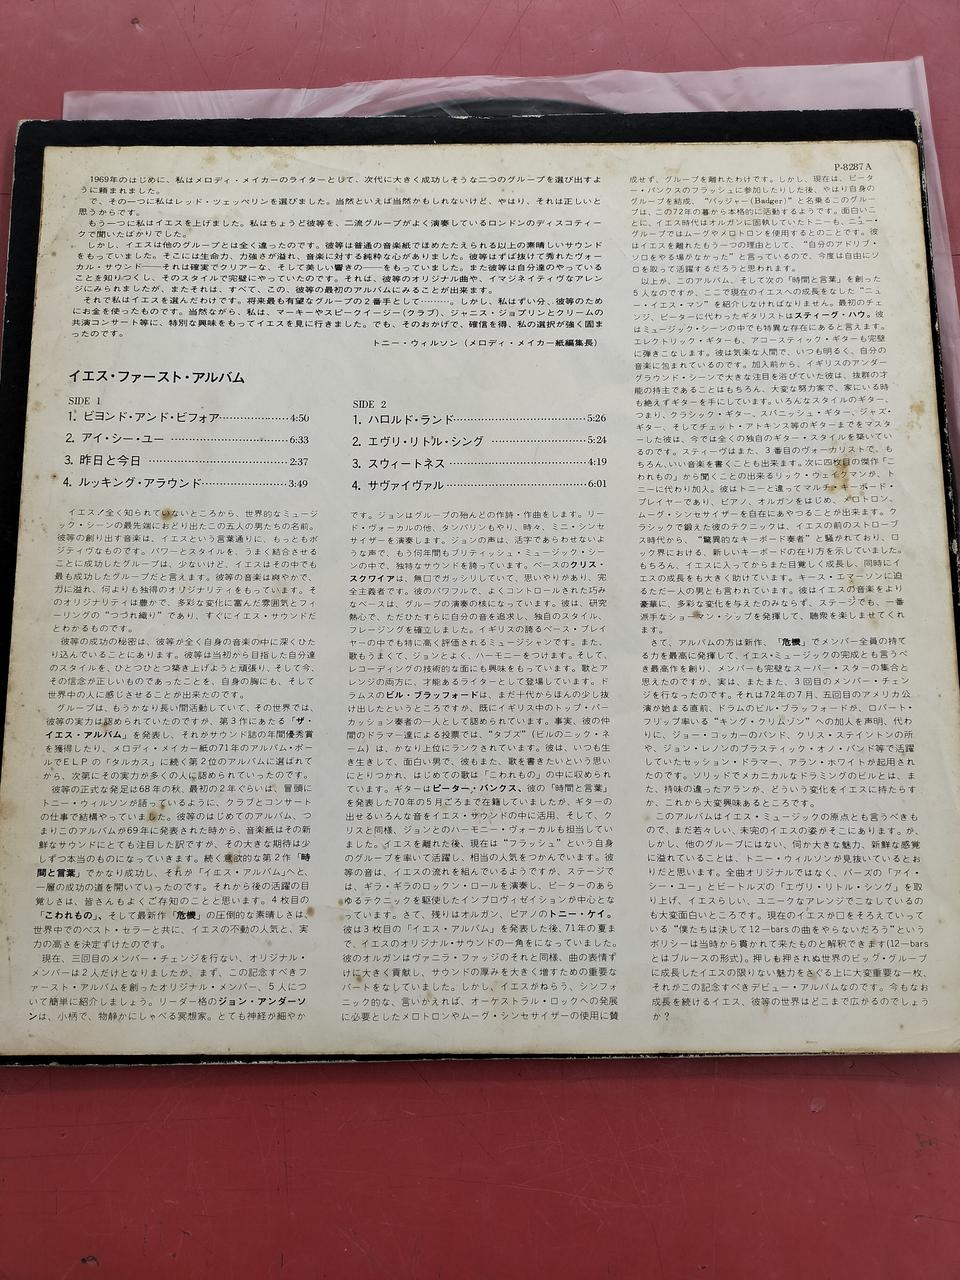 P-8287A
1969年のはじめに、私はメロディ・メイカーのライターとして、次代に大きく成功しそうな二つのグループを選び出すよ
うに頼まれました。
で、その一つに私はレッド・ツェッペリンを選びました。当然といえば当然かもしれないけど、やはり、それは正しいと
思うからです。
もう一つに私はイエスを上げました。私はちょうど彼等を、二流グループがよく演奏しているロンドンのディスコティー
クで聞いたばかりでした。
しかし、イエスは他のグループとは全く違ったのです。彼等は普通の音楽紙でほめたたえられる以上の素晴しいサウンド
をもっていました。そこには生命力、力強さが溢れ、音楽に対する純粋な心がありました。彼等はずば抜けて秀れたヴォー
カル・サウンド――それは確実でクリアーな、そして美しい響きの――をもっていました。また彼等は自分達のやっている
ことを知りつくし、そのスタイルで完璧にやっていたのです。それは、彼等のオリジナル曲や、イマジネイティヴなアレン
ジにみられましたが、またそれは、すべて、この、彼等の最初のアルバムにみることが出来ます。
それで私はイエスを選んだわけです。将来最も有望なグループの2番手として………。しかし、私はずい分、彼等のため
にお金を使ったものです。当然ながら、私は、マーキーやスピークイージー(クラブ)、ジャニス・ジョプリンとクリームの
共演コンサート等に、特別な興味をもってイエスを見に行きました。でも、そのおかげで、確信を得、私の選択が強く固ま
ったのです。
トニー・ウィルソン (メロディ・メイカー紙編集長)
イエス・ファースト・アルバム
SIDE 1
1. ビヨンド・アンド・ビフォア……………………4:50
2. アイ・シー・ユー ……………………6:33
3. 昨日と今日 ……………………2:37
4. ルッキング・アラウンド……………………3:49
SIDE 2
1. ハロルド・ランド……………………5:26
2. エヴリ・リトル・シング ……………………5:24
3. スウィートネス ……………………4:19
4. サヴァイヴァル……………………6:01
イエス！全く知られていないところから、世界的なミュージ
ック・シーンの最先端におどり出たこの五人の男たちの名前。
彼等の創り出す音楽は、イエスという言葉通りに、もっともポ
ジティヴなものです。パワーとスタイルを、うまく結合させる
ことに成功したグループは、少ないけど、イエスはその中でも
最も成功したグループだと言えます。彼等の音楽は爽やかで、
力に溢れ、何よりも独得のオリジナリティをもっています。そ
のオリジナリティは豊かで、多彩な変化に富んだ雰囲気とフィ
ーリングの“つづれ織り”であり、すぐにイエス・サウンドだ
とわかるものです。
彼等の成功の秘密は、彼等が全く自身の音楽の中に深くひた
り込んでいることにあります。彼等は当初から目指した自分達
のスタイルを、ひとつひとつ築き上げようと頑張り、そして今、
その信念が正しいものであったことを、自身の胸にも、そして
世界中の人に感じさせることが出来たのです。
グループは、もうかなり長い間活動していて、その世界では、
彼等の実力は認められていたのですが、第3作にあたる「ザ・
イエス・アルバム」を発表し、それがサウンド誌の年間優秀賞
を獲得したり、メロディ・メイカー紙の71年のアルバム・ポー
ルでELPの「タルカス」に続く第2位のアルバムに選ばれて
から、次第にその実力が多くの人に認められていったのです。
彼等の正式な発足は68年の秋、最初の2年ぐらいは、冒頭に
トニー・ウィルソンが語っているように、クラブとコンサート
の仕事で結構やっていました。彼等のはじめてのアルバム、つ
まりこのアルバムが69年に発表された時から、音楽紙はその新
鮮なサウンドにとても注目した訳ですが、その大きな期待は少
しずつ本当のものになっていきます。続く意欲的な第2作「時
間と言葉」でかなり成功し、それが「イエス・アルバム」へと、
一層の成功の道を開いていったのです。それから後の活躍の目
覚しさは、皆さんもよくご存知のことと思います。4枚目の
「こわれもの」、そして最新作「危機」の圧倒的な素晴しさは、
世界中でのベスト・セラーと共に、イエスの不動の人気と、実
力の高さを決定ずけたのです。
現在、三回目のメンバー・チェンジを行ない、オリジナル・
メンバーは2人だけとなりましたが、まず、この記念すべきフ
ァースト・アルバムを創ったオリジナル・メンバー、5人につ
いて簡単に紹介しましょう。リーダー格のジョン・アンダーソ
ンは、小柄で、物静かにしゃべる冥想家。とても神経が細やか
です。ジョンはグループの殆んどの作詩・作曲をします。リー
ド・ヴォーカルの他、タンバリンもやり、時々、ミニ・シンセ
サイザーを演奏します。ジョンの声は、活字であらわせないよ
うな声で、もう何年間もブリティッシュ・ミュージック・シー
ンの中で、独特なサウンドを誇っています。ベースのクリス・
スクワイアは、無口でガッシリしていて、思いやりがあり、完
全主義者です。彼のパワフルで、よくコントロールされた巧み
なベースは、グループの演奏の核になっています。彼は、研究
熱心で、ただひたすらに自分の音を追求し、独自のスタイル、
フレージングを確立しました。イギリスの誇るベース・プレイ
ヤーの中でも特に高く評価されるミュージシャンです。また、
歌もうまくて、ジョンとよく、ハーモニーをつけます。そして、
レコーディングの技術的な面にも興味をもっています。歌とア
レンジの両方に、才能あるライターとして登場しています。ド
ラムスのビル・ブラッフォードは、まだ十代からほんの少し抜
け出したというところですが、既にイギリス中のトップ・パー
カッション奏者の一人として認められています。事実、彼の仲
間のドラマー達による投票では、“タブス”(ビルのニック・ネ
ーム) は、かなり上位にランクされています。彼は、いつも生
き生きして、面白い男で、彼もまた、歌を書きたいという思い
にとりつかれ、はじめての歌は「こわれもの」の中に収められ
ています。ギターはピーター・バンクス、彼の「時間と言葉」
を発表した70年の5月ごろまで在籍していましたが、ギターの
出せるいろんな音をイエス・サウンドの中に活用、そして、ク
リスと同様、ジョンとのハーモニー・ヴォーカルも担当してい
ました。イエスを離れた後、現在は“フラッシュ”という自身
のグループを率いて活躍し、相当の人気をつかんでいます。彼
等の音は、イエスの流れを組んでいるようですが、ステージで
は、ギラ・ギラのロックン・ロールを演奏し、ピーターのあら
ゆるテクニックを駆使したインプロヴィゼイションが中心とな
っています。さて、残りはオルガン、ピアノのトニー・ケイ。
彼は3枚目の「イエス・アルバム」を発表した後、71年の夏ま
で、イエスのオリジナル・サウンドの一角をになっていました。
彼のオルガンはヴァニラ・ファッジのそれと同様、曲の表情ず
けに大きく貢献し、サウンドの厚みを大きく増すための重要な
パートをなしていました。しかし、イエスがねらう、シンフォ
ニック的な、言いかえれば、オーケストラル・ロックへの発展
に必要としたメロトロンやムーグ・シンセサイザーの使用に賛
成せず、グループを離れたわけです。しかし、現在は、ピータ
ー・バンクスのフラッシュに参加したりした後、やはり自身の
グループを結成、“バッジャー(Badger)”と名乗るこのグルー
プは、この72年の暮から本格的に活動するようです。面白いこ
とに、イエス時代はオルガンに固執していたトニーも、ニュー・
グループではムーグやメロトロンを使用するとのことです。彼
はイエスを離れたもう一つの理由として、“自分のアドリブ・
ソロをやる場がなかった”と言っているので、今度は自由にソ
ロを取って活躍するだろうと思われます。
以上が、このアルバム、そして次の「時間と言葉」を創った
5人なのですが、ここで現在のイエスへの成長をなした“ニュ
ー・イエス・マン”を紹介しなければなりません。最初のチェ
ンジ、ピーターに代わったギタリストはスティーグ・ハウ。彼
はミュージック・シーンの中でも特異な存在にあると言えます。
エレクトリック・ギターも、アコースティック・ギターも完璧
に弾きこなします。彼は気楽な人間で、いつも明るく、自分の
音楽に包まれているのです。加入前から、イギリスのアンダー
グラウンド・シーンで大きな注目を浴びていた彼は、抜群の才
能の持主であることはもちろん、大変な努力家で、家にいる時
も絶えずギターを手にしています。いろんなスタイルのギター、
つまり、クラシック・ギター、スパニッシュ・ギター、ジャズ・
ギター、そしてチェット・アトキンス等のギターまでをマスタ
ーした彼は、今では全くの独自のギター・スタイルを築いてい
るのです。スティーヴはまた、3番目のヴォーカリストで、も
ちろん、いい音楽を書くことも出来ます。次に四枚目の傑作「こ
われもの」から聞くことの出来るリック・ウェイクマンが、ト
ニーに代わり加入。彼はトニーと違ってマルチ・キーボード・
プレイヤーであり、ピアノ、オルガンをはじめ、メロトロン、
ムーグ・シンセサイザーを自在にあやつることが出来ます。ク
ラシックで鍛えた彼のテクニックは、イエスの前のストローブ
ス時代から、“驚異的なキーボード奏者”と騒がれており、ロ
ック界における、新しいキーボードの在り方を示していました。
もちろん、イエスに入ってからまた目覚しく成長し、同時にイ
エスの成長をも大きく助けています。キース・エマーソンに迫
るただ一人の男とも言われています。彼はイエスの音楽をより
豪華に、多彩な変化を与えたのみならず、ステージでも、一番
派手なショーマン・シップを発揮して、聴衆を楽しませてくれ
ます。
さて、アルバムの方は新作、「危機」でメンバー全員の持て
る力を最高に発揮して、イエス・ミュージックの完成とも言うべ
き最高作を創り、メンバーも完璧なスーパー・スターの集合と
思えたのですが、実は、またまた、3回目のメンバー・チェン
ジを行なったのです。それは72年の7月、五回目のアメリカ公
演が始まる直前、ドラムのビル・ブラッフォードが、ロバート・
フリップ率いる“キング・クリムゾン”への加入を声明、代わ
りに、ジョー・コッカーのバンド、クリス・ステイントンの所
や、ジョン・レノンのプラスティック・オノ・バンド等で活躍
していたセッション・ドラマー、アラン・ホワイトが起用され
たのです。ソリッドでメカニカルなドラミングのビルとは、ま
た、持味の違ったアランが、どういう変化をイエスに持たらす
か、これから大変興味あるところです。
このアルバムはイエス・ミュージックの原点とも言うべきも
ので、まだ若々しい、未完のイエスの姿がそこにあります。が、
しかし、他のグループにはない、何か大きな魅力、新鮮な感覚
に溢れていることは、トニー・ウィルソンが見抜いているとお
りだと思います。全曲オリジナルではなく、バーズの「アイ・
シー・ユー」とビートルズの「エヴリ・リトル・シング」を取
り上げ、イエスらしい、ユニークなアレンジでこなしているの
も大変面白いところです。現在のイエスが口をそろえていって
いる“僕たちは決して12―barsの曲をやらないだろう”という
ポリシーは当時から貫かれて来たものと解釈できます(12―bars
とはブルースの形式)。押しも押されぬ世界のビッグ・グループ
に成長したイエスの限りない魅力をさぐる上に大変重要な一枚、
それがこの記念すべきデビュー・アルバムなのです。今もなお
成長を続けるイエス、彼等の世界はどこまで広がるのでしょう
か？